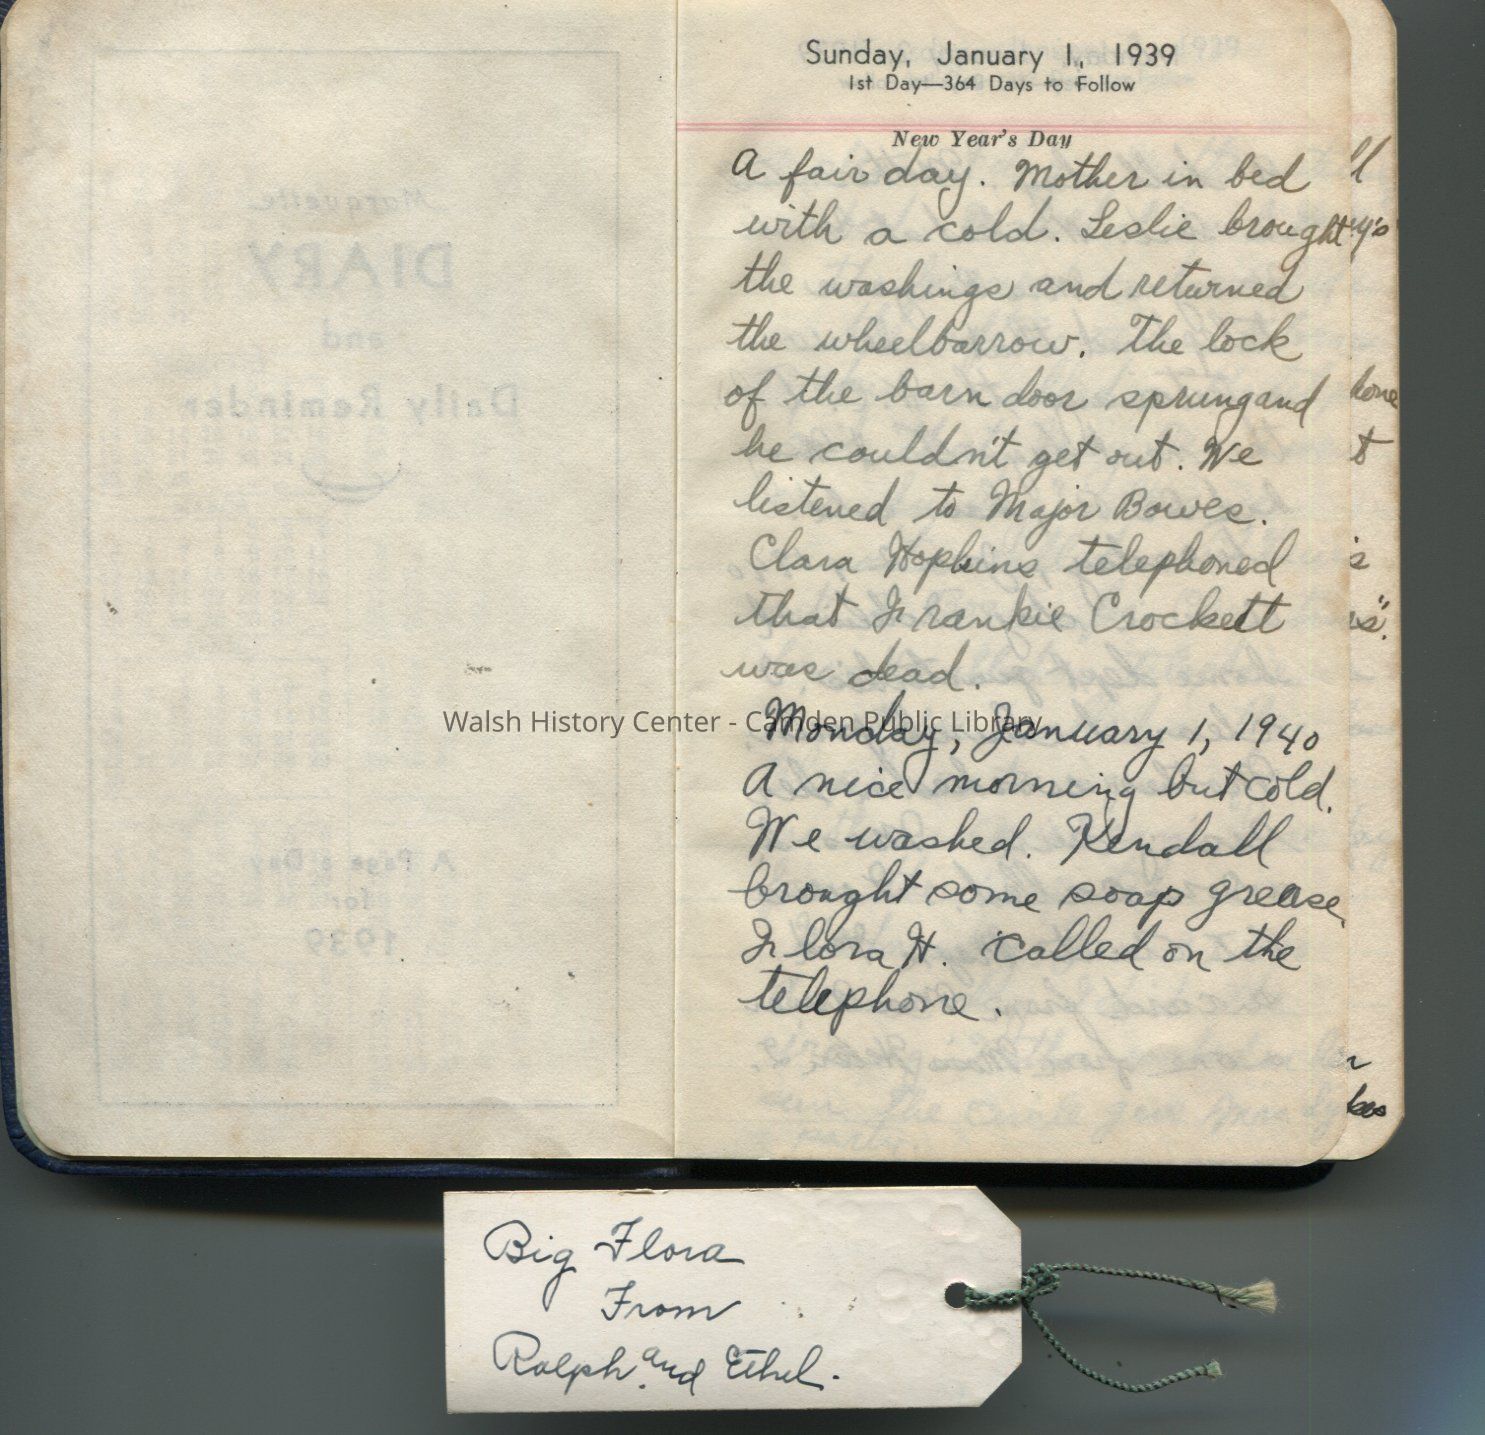 Sunday, January 1, 1939
1st Day—364 Days to Follow
New Year's Day
A fair day. Mother in bed
with a cold. Leslie brought
the washings and returned
the wheelbarrow. The lock
of the barn door sprung and
he couldn't get out. We
listened to Major Bowes.
Clara Hopkins telephoned
that Frankie Crockett
was dead.
Walsh History Center - Camden Public Library
Monday, January 1, 1940
A nice morning but cold.
We washed. Kendall
brought some soap grease.
Flora H. called on the
telephone.
Marquette
DIARY
and
Daily Reminder
A Page a Day
for
1939
Big Flora
From
Ralph and Ethel.